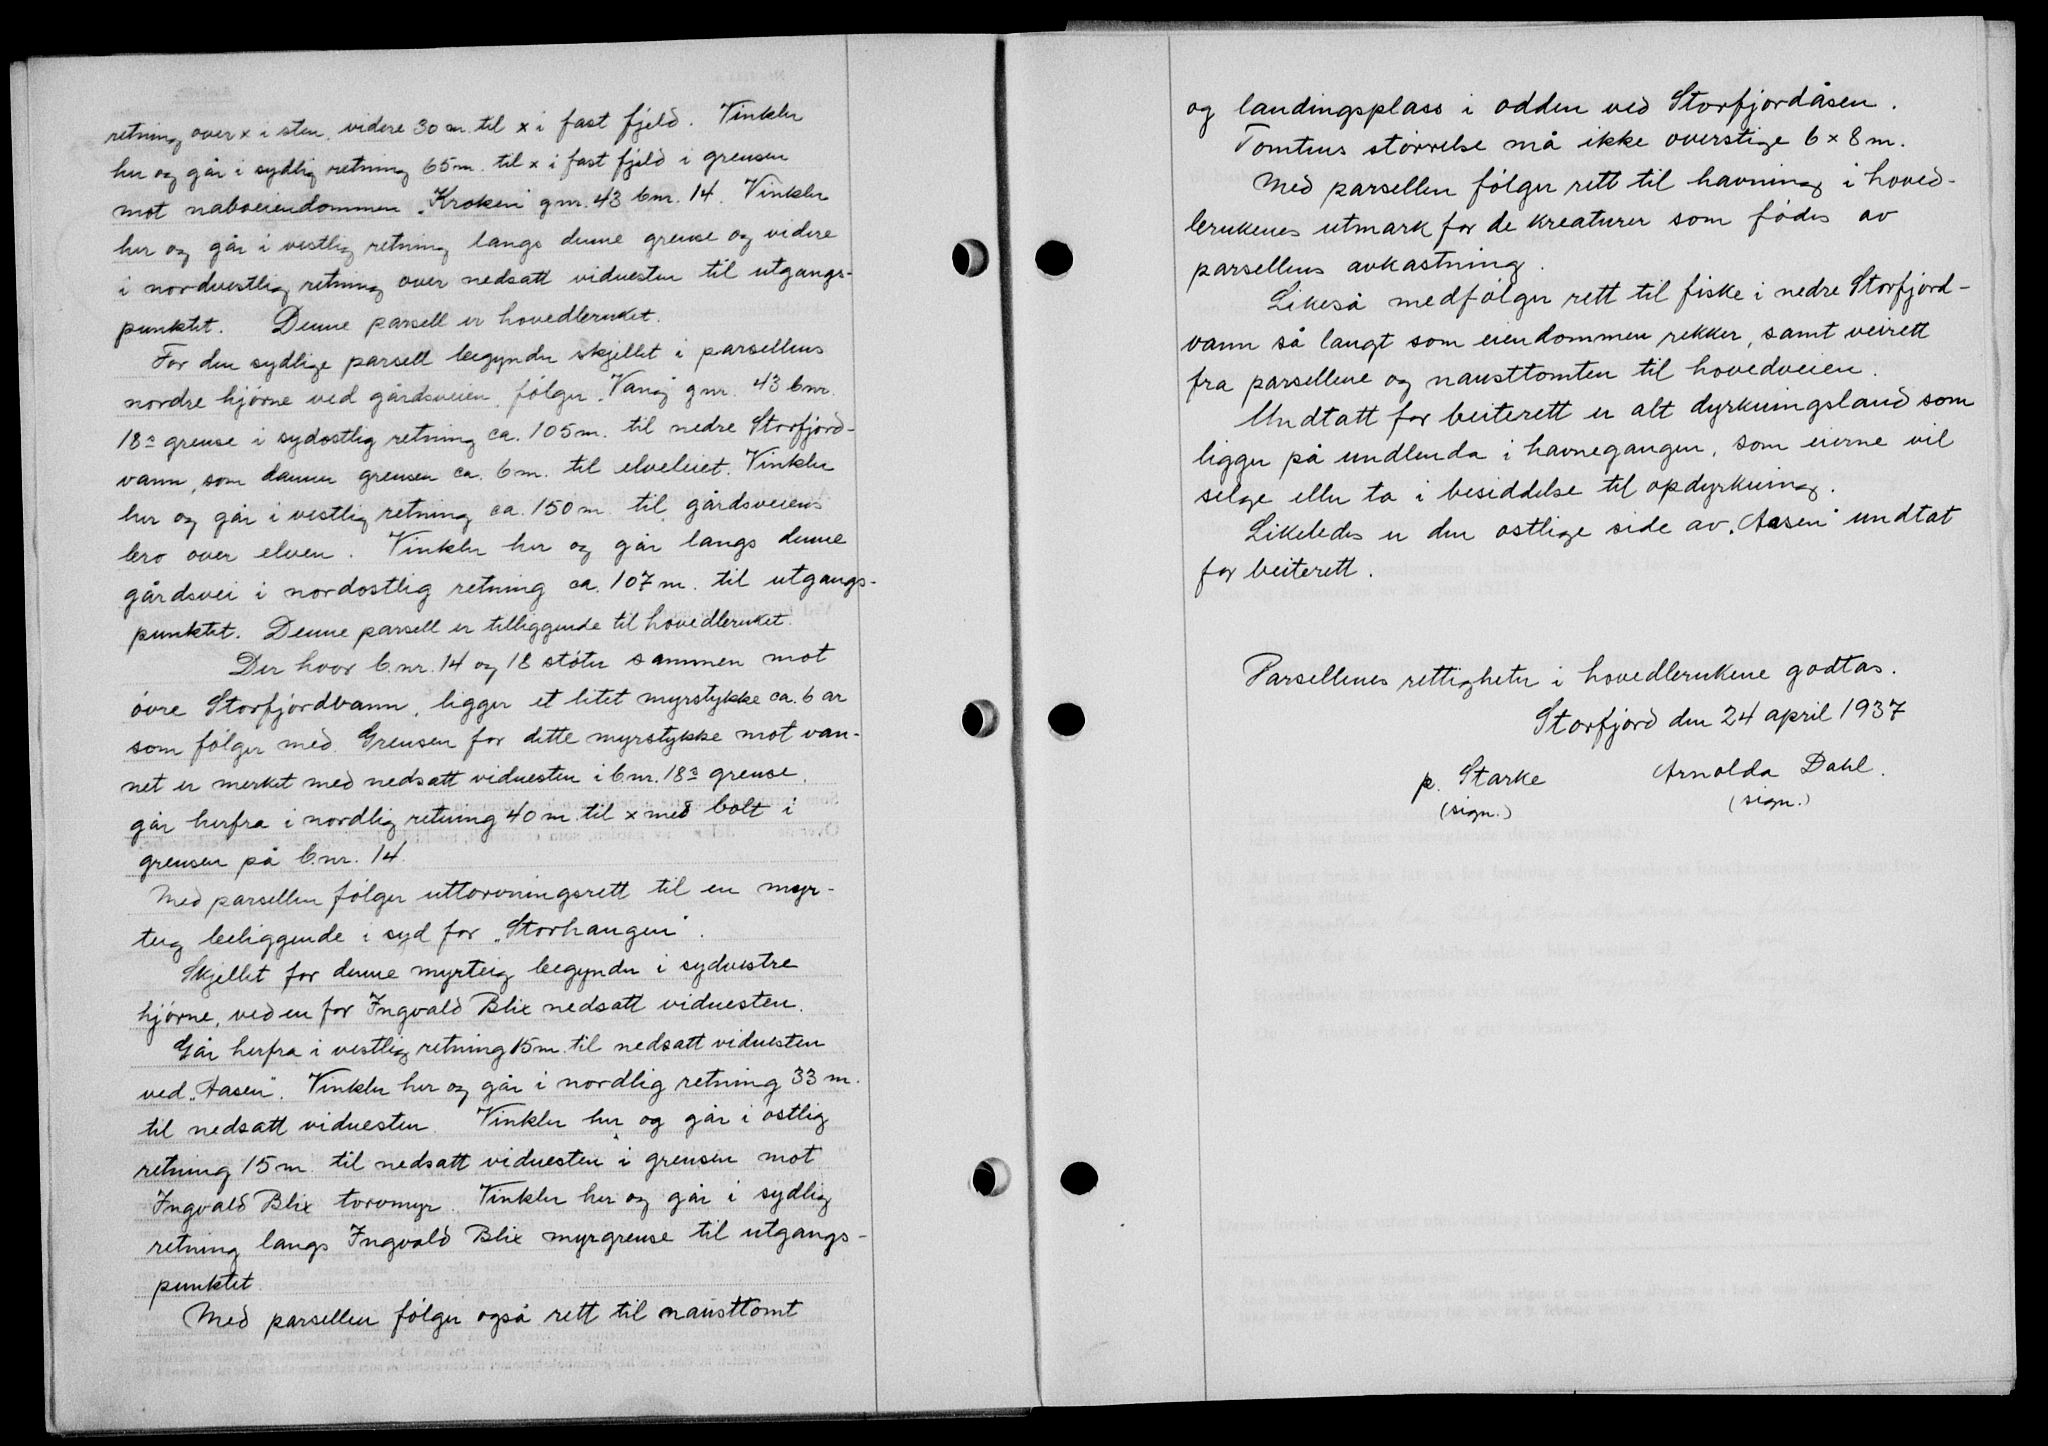 retning over x i sten, videre 30 m. til x i fast fjeld. Vinkler
her og går i sydlig retning 65 m. til x i fast fjeld i grensen
mot naboeiendommen „Kroken" gnr. 43 bnr. 14. Vinkler
her og går i vestlig retning langs denne grense og videre
i nordvestlig retning over nedsatt vidnesten til utgangs-
punktet. Denne parsell er hovedbruket.
For den sydlige parsell begynder skjellet i parsellens
nordre hjørne ved gårdsveien, følger „Vang" gnr. 43 bnr.
18s grense i sydostlig retning ca. 105 m. til nedre Storfjord-
vann, som danner grensen ca. 6 m. til elveleiet. Vinkler
her og går i vestlig retning ca. 150 m. til gårdsveiens
bro over elven. Vinkler her og går langs denne
gårdsvei i nordostlig retning ca. 107 m. til utgangs-
punktet. Denne parsell er tilliggende til hovedbruket.
Der hvor b.nr. 14 og 18 støter sammen mot
øvre Storfjordvann, ligger et litet myrstykke ca. 6 ar
som følger med. Grensen for dette myrstykke mot van-
net er merket med nedsatt vidnesten i bnr. 18s grense,
går herfra i nordlig retning 40 m. til x med bolt i
grensen på b.nr. 14.
Med parsellen følger uttorvningsrett til en myr-
teig beliggende i syd for „Storhaugen".
Skjellet for denne myrteig begynder i sydvestre
hjørne, ved en for Ingvald Blix nedsatt vidnesten.
Går herfra i vestlig retning 15 m. til nedsatt vidnesten
ved „Aasen". Vinkler her og går i nordlig retning 33 m.
til nedsatt vidnesten. Vinkler her og går i ostlig
retning 15 m. til nedsatt vidnesten i grensen mot
Ingvald Blix torvmyr. Vinkler her og går i sydlig
retning langs Ingvald Blix myrgrense til utgangs-
punktet.
Med parsellen følger også rett til nausttomt
og landingsplass i odden ved Storfjordåsen.
Tomtens størrelse må ikke overstige 6 x 8 m.
Med parsellen følger rett til havning i hoved-
brukenes utmark for de kreaturer som fødes av
parsellens avkastning.
Likeså medfølger rett til fiske i nedre Storfjord-
vann så langt som eiendommen rekker, samt veirett
fra parsellene og nausttomten til hovedveien.
Undtatt for beiterett er alt dyrkningsland som
ligger på undlenda i havnegangen, som eierne vil
selge eller ta i besiddelse til opdyrkning.
Likeledes er den ostlige side av „Aasen" undtat
for beiterett.
Parsellenes rettigheter i hovedbrukene godtas.
Storfjord den 24 april 1937
p. Starke Arnolda Dahl.
(sign.) (sign.)